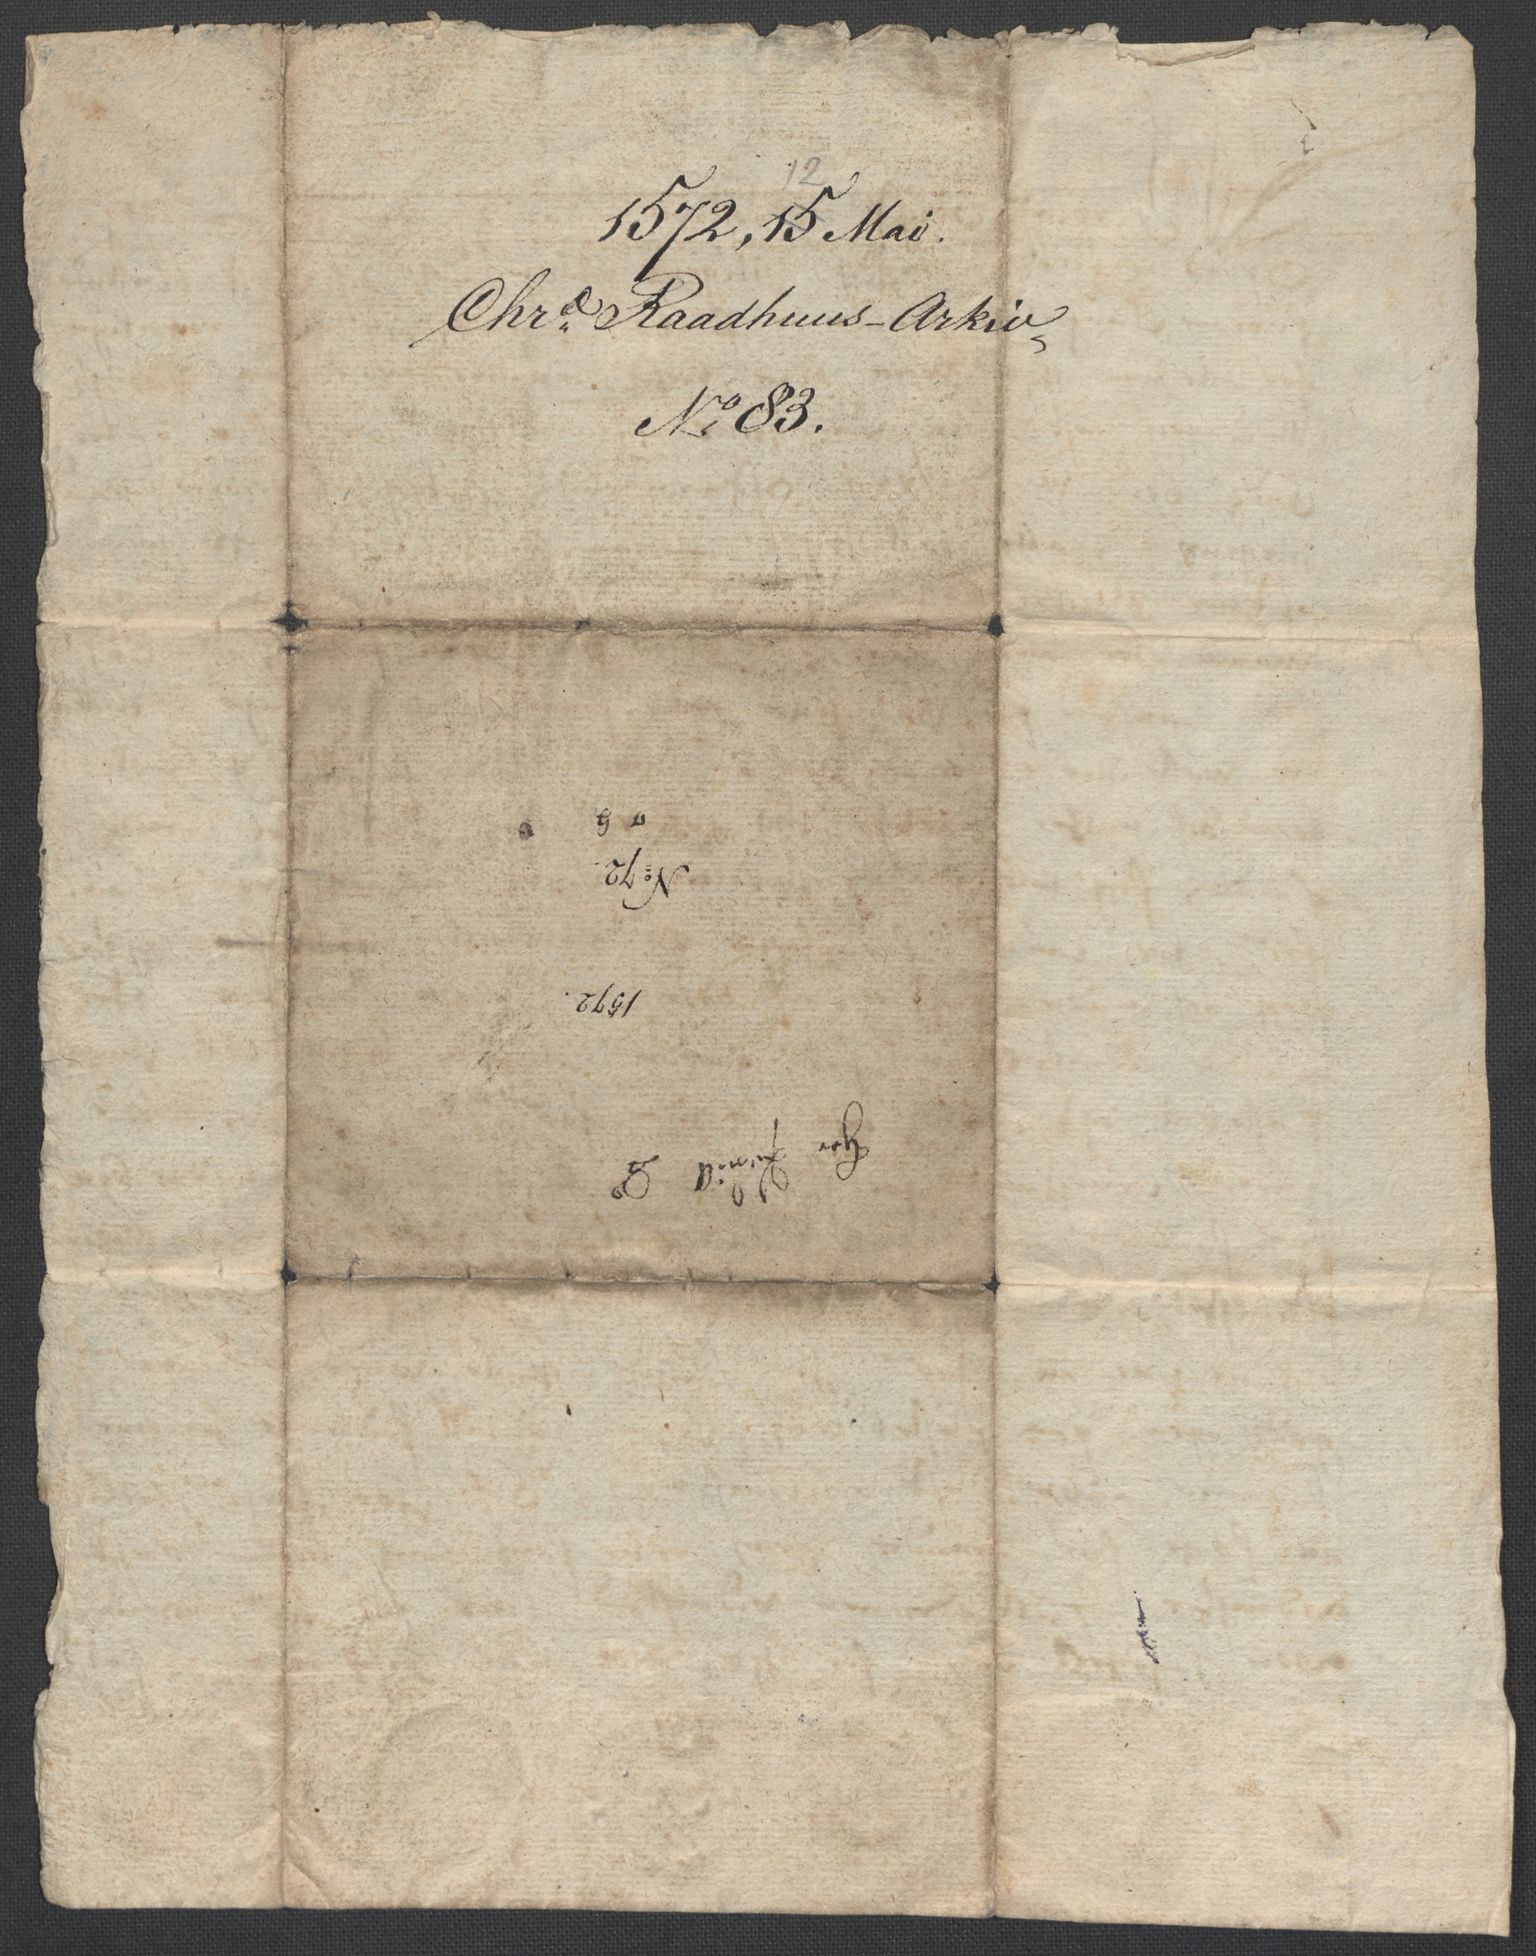 12
1572, 15 Mai.
Chra Raadhuus-Arkiv
No 83.
Her
1572.
No 72.